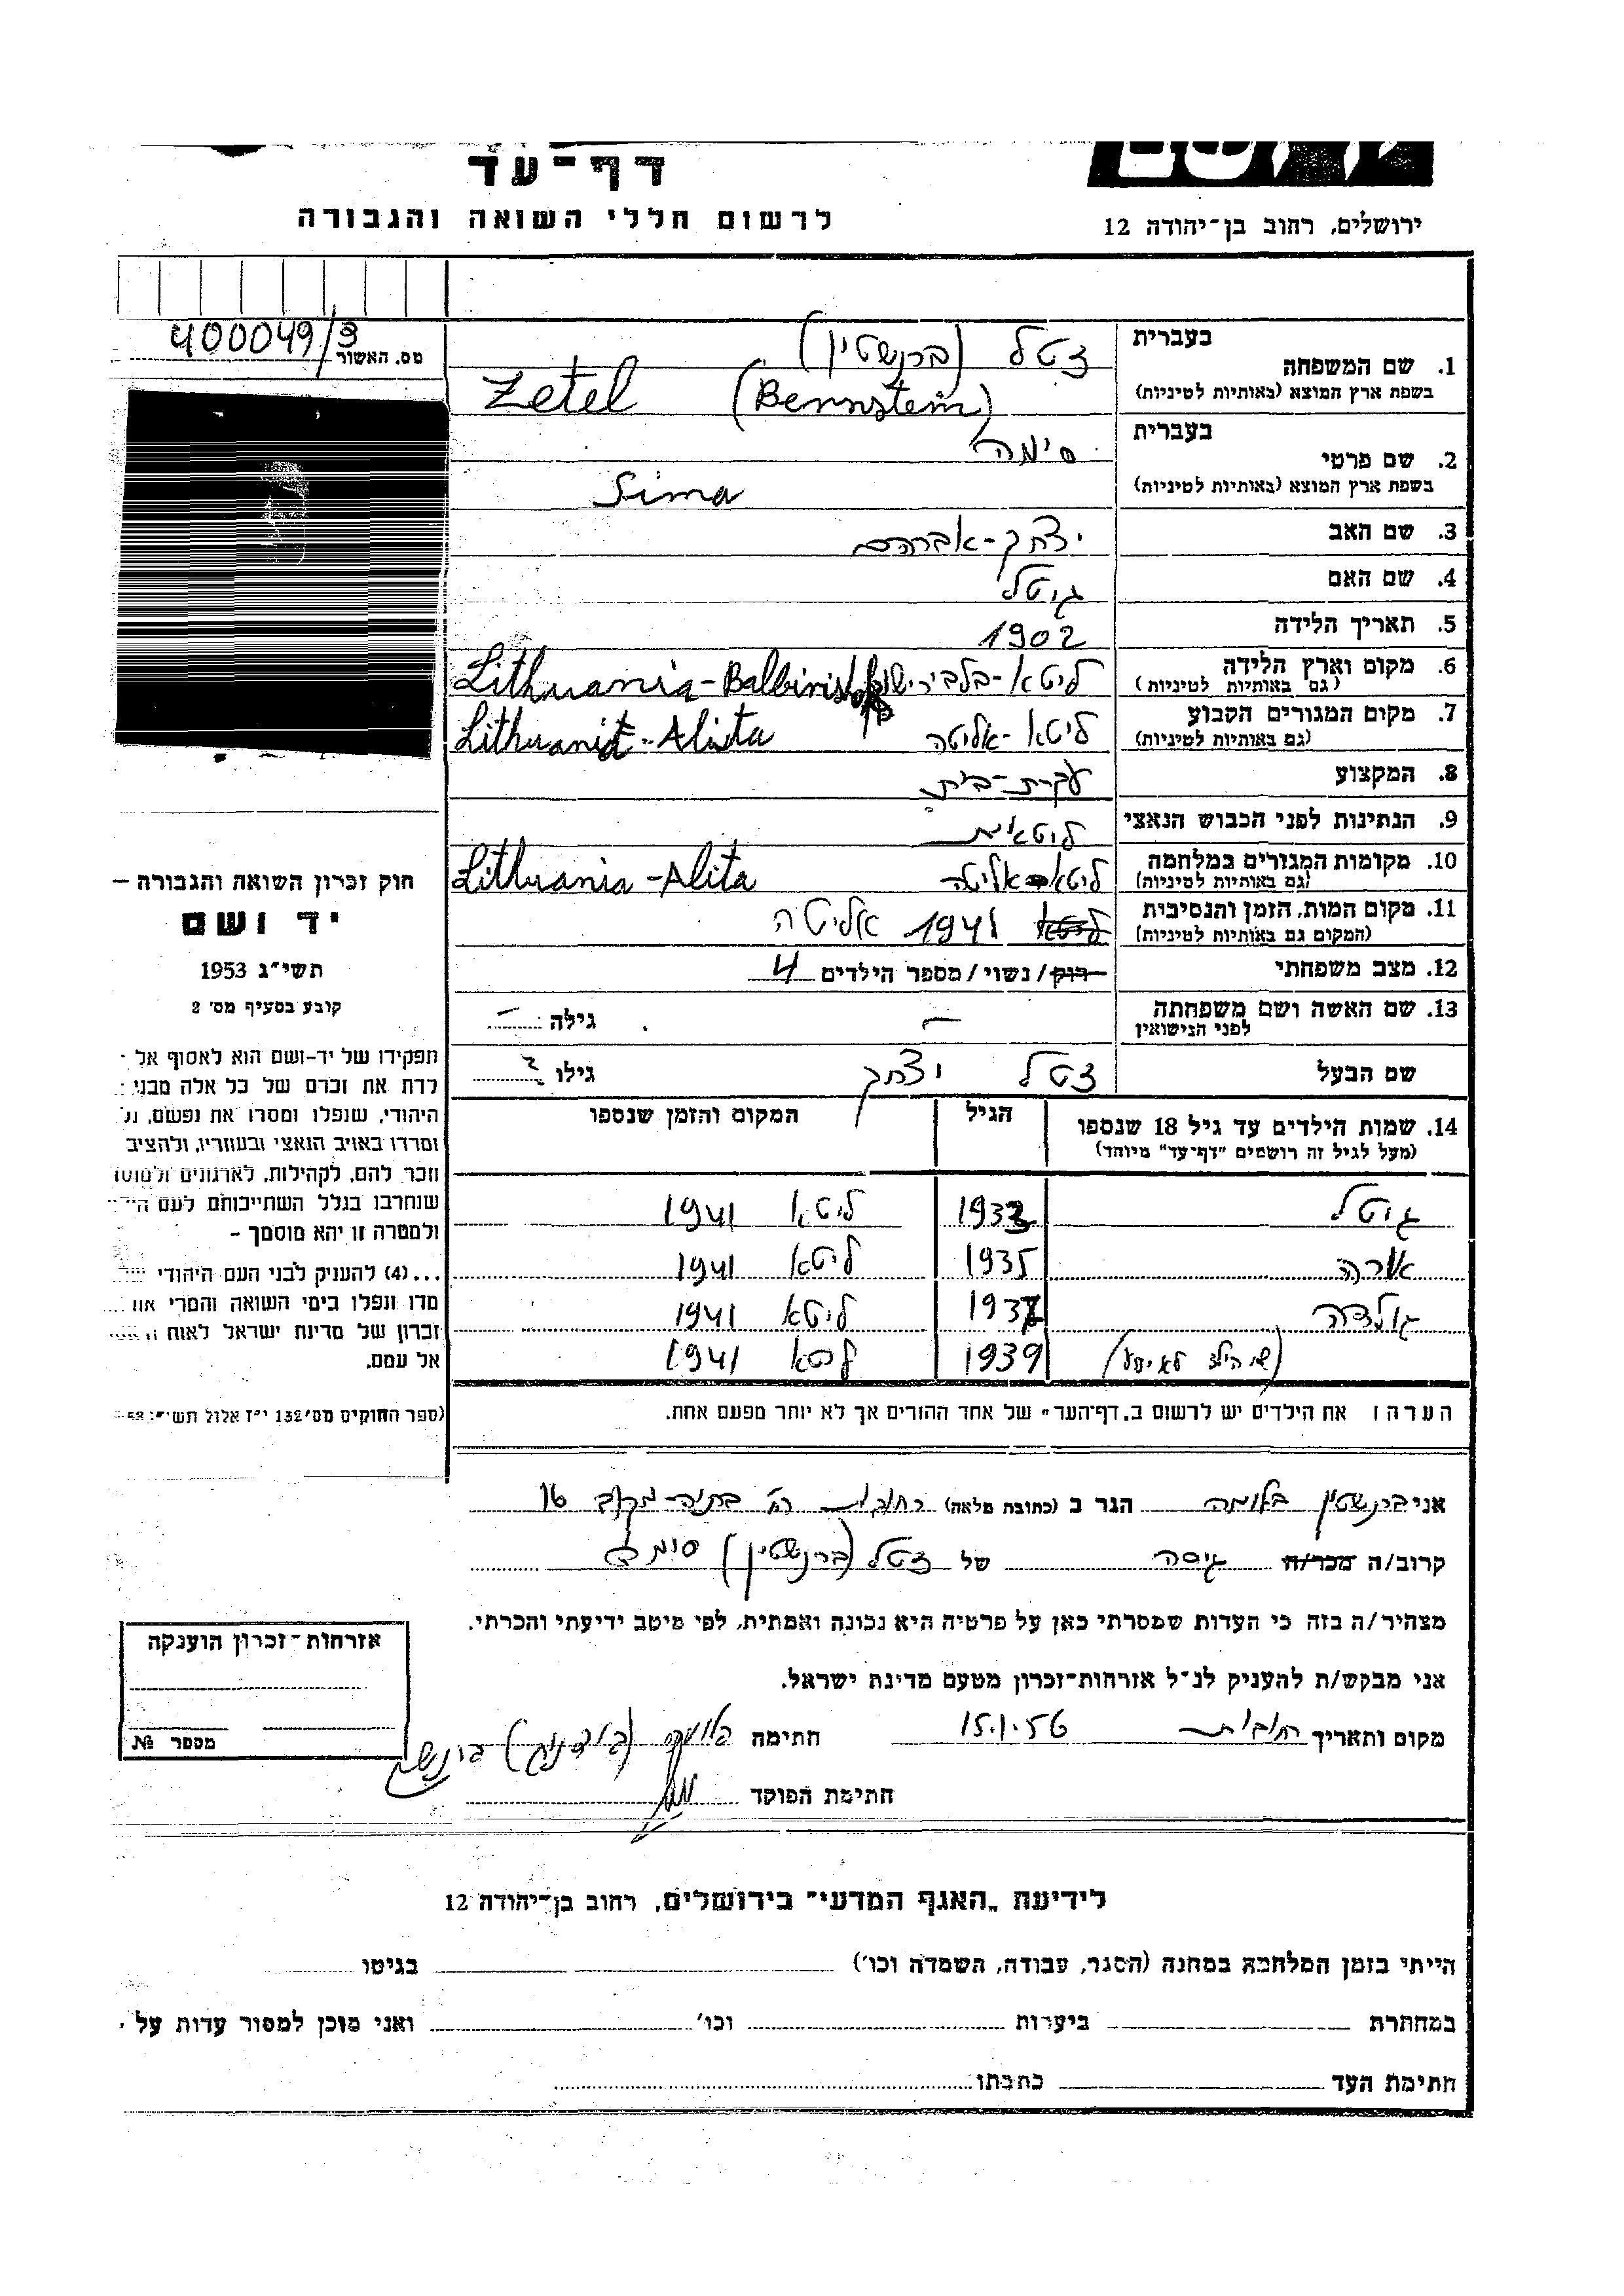 דף-עד
לרשום חללי השואה והגבורה
ירושלים, רחוב בן-יהודה 12
מס. האשור 400049/3
1. שם המשפחה
בעברית צטל (ברנשטין)
בשפת ארץ המוצא (באותיות לטיניות) Zetel (Bernstein)
2. שם פרטי
בעברית סימה
בשפת ארץ המוצא (באותיות לטיניות) Sima
3. שם האב יצחק-אברהם
4. שם האם גיטל
5. תאריך הלידה 1902
6. מקום וארץ הלידה ליטא-
(גם באותיות לטיניות) Lithuania-
7. מקום המגורים הקבוע ליטא-אליטה
(גם באותיות לטיניות) Lithuania-Alita
8. המקצוע עקרת-בית
9. הנתינות לפני הכבוש הנאצי ליטאית
10. מקומות המגורים במלחמה ליטא-אליטה
(גם באותיות לטיניות) Lithuania-Alita
11. מקום המות, הזמן והנסיבות ליטא 1941 אליטה
(המקום גם באותיות לטיניות)
12. מצב משפחתי רוק/נשוי/מספר הילדים 4
13. שם האשה ושם משפחתה - גילה -
לפני הנישואין
שם הבעל צטל יצחק גילו ?
14. שמות הילדים עד גיל 18 שנספו הגיל המקום והזמן שנספו
(מעל לגיל זה רושמים "דף-עד" מיוחד)
גיטל 1933 ליטא 1941
שרה 1935 ליטא 1941
גולדה 1937 ליטא 1941
(שם הילד לא ידוע) 1939 ליטא 1941
הערה: את הילדים יש לרשום ב„דף-העד" של אחד ההורים אך לא יותר מפעם אחת.
חוק זכרון השואה והגבורה –
יד ושם
תשי"ג 1953
קובע בסעיף מס' 2
תפקידו של יד-ושם הוא לאסוף אל
לדת את זכרם של כל אלה מבני
היהודי, שנפלו ומסרו את נפשם,
ומרדו באויב הנאצי ובעוזריו, ולהציב
וזכר להם, לקהילות, לארגונים ולמוסד
שנחרבו בגלל השתייכותם לעם הי
ולמטרה זו יהא מוסמך -
...(4) להעניק לבני העם היהודי
מדו ונפלו בימי השואה והמרי
זכרון של מדינת ישראל לאות
אל עמם.
(ספר החוקים מס' 132 י"ז אלול תשי"ג
אני ברנשטין בלומה הגר ב (כתובת מלאה) רחובות 16
קרוב/ה מכר/ה גיסה של צטל (ברנשטין) סימה
מצהיר/ה בזה כי העדות שמסרתי כאן על פרטיה היא נכונה ואמתית, לפי מיטב ידיעתי והכרתי.
אני מבקש/ת להעניק לנ"ל אזרחות-זכרון מטעם מדינת ישראל.
מקום ותאריך רחובות 15.1.56 חתימה
חתימת הפוקד
אזרחות-זכרון הוענקה
מספר №
לידיעת „האגף המדעי" בירושלים, רחוב בן-יהודה 12
הייתי בזמן המלחמה במחנה (הסגר, עבודה, השמדה וכו') בגיטו
במחתרת ביערות וכו' ואני מוכן למסור עדות על
חתימת העד כתבתו